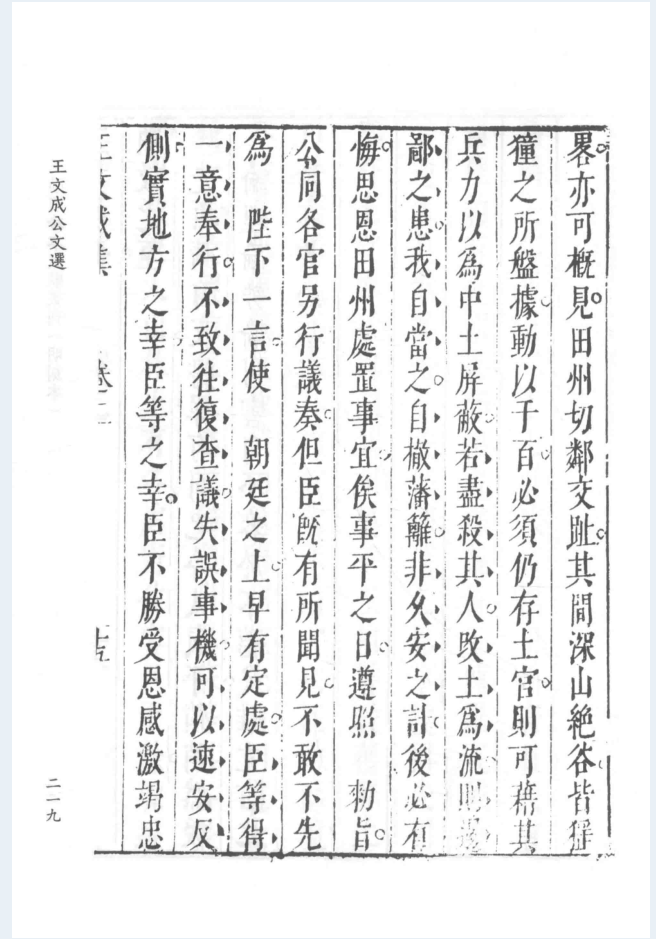 畧亦可槪見田州切鄰交趾其間深山絶谷皆猺
獞之所盤據動以千百必須仍存土官則可藉其
兵力以爲中土屏蔽若盡殺其人改土爲流則邊
鄙之患我自當之自撤藩籬非久安之計後必有
悔思恩田州處置事宜俟事平之日遵照 勑旨
公同各官另行議奏但臣旣有所聞見不敢不先
爲 陛下一言使 朝廷之上早有定處臣等得
一意奉行不致往復查議失誤事機可以速安反
側實地方之幸臣等之幸臣不勝受恩感激竭忠
王文成集 卷二
王文成公文選
二一九